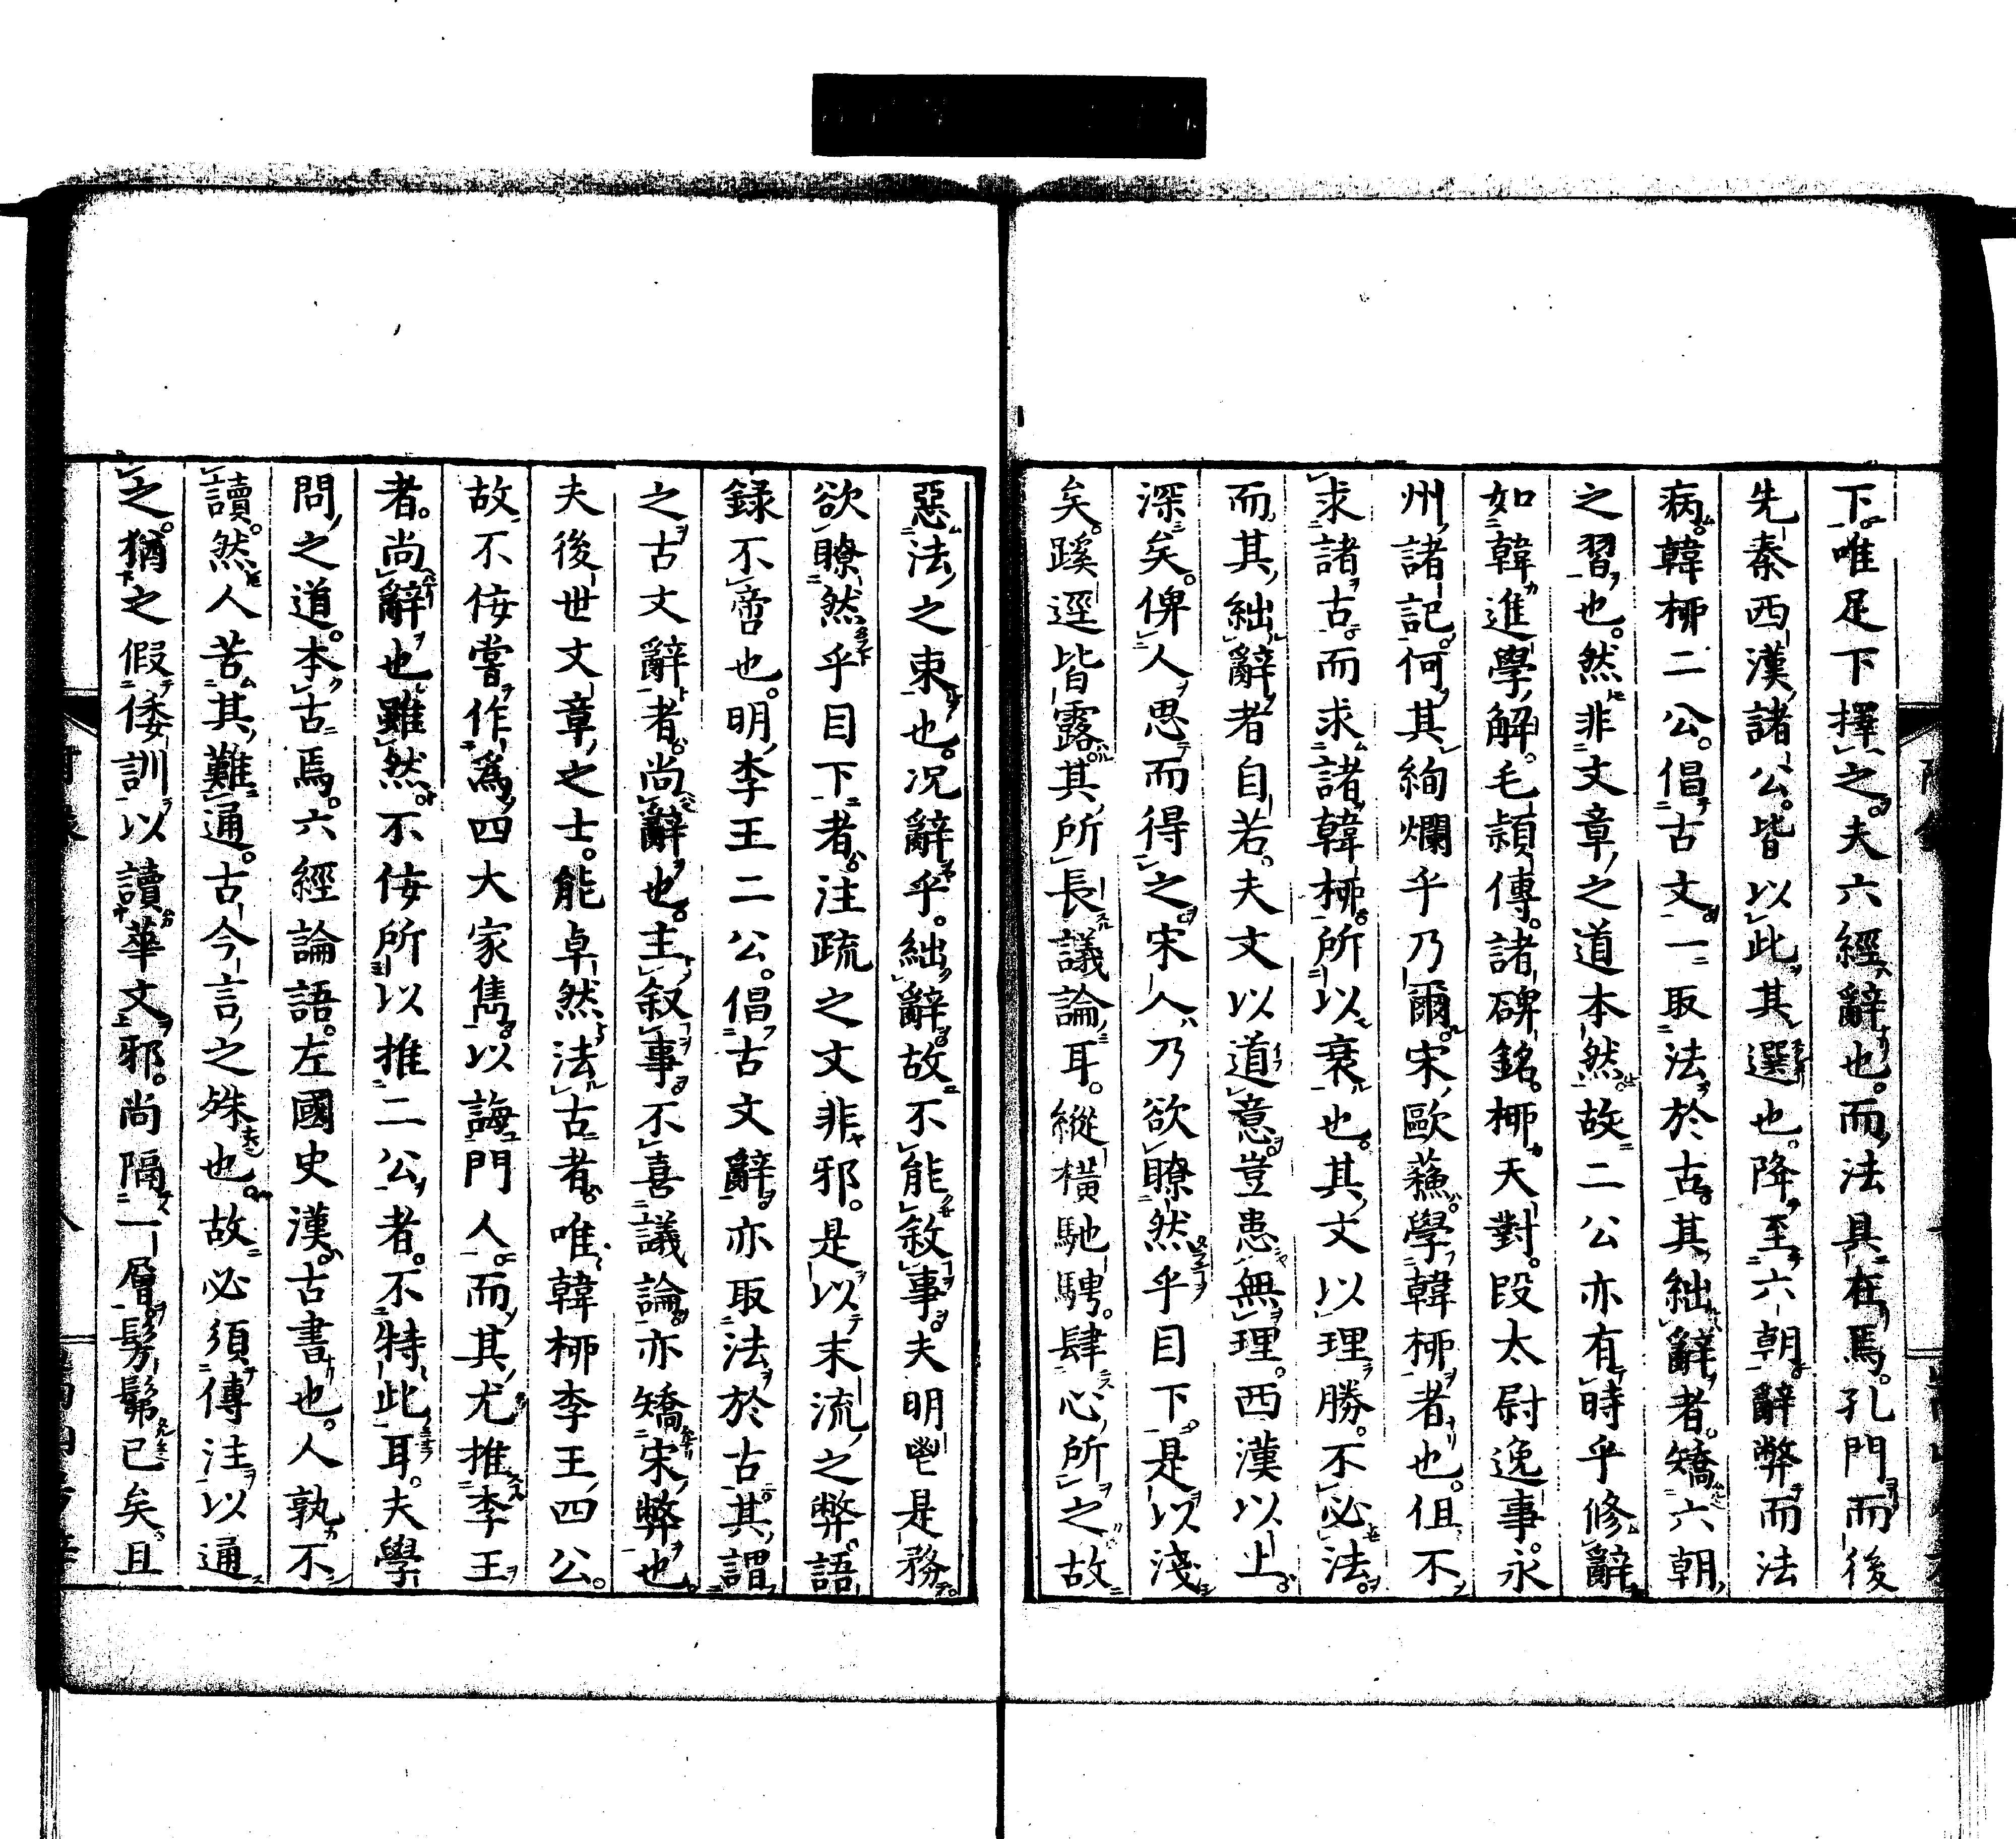 下。唯足下擇之。夫六經辭也。而法具在焉。孔門而後
先秦西漢諸公。皆以此其選也。降至六朝辭弊而法
病。韓柳二公。倡古文一取法於古。其絀辭者。矯六朝
之習也。然非文章之道本然故二公亦有時乎修辭
如韓進學解。毛頴傳。諸碑銘。柳天對。段太尉逸事。永
州諸記。何其絢爛乎乃爾。宋歐蘓學韓柳者也。但不
求諸古。而求諸韓柳。所以衰也。其文以理勝。不必法。
而其絀辭者自若。夫文以道意。豈患無理。西漢以上。
深矣。俾人思而得之。宋人乃欲瞭然乎目下。是以淺
矣。蹊逕皆露。其所長議論耳。縱橫馳騁。肆心所之。故
惡法之束也。况辭乎。絀辭故不能敘事。夫明鬯是務。
欲瞭然乎目下者。注疏之文非邪。是以末流之弊。語
録不啻也。明李王二公。倡古文辭。亦取法於古。其謂
之古文辭者。尚辭也。主叙事。不喜議論。亦矯宋弊也。
夫後世文章之士。能卓然法古者。唯韓柳李王四公。
故不佞嘗作爲四大家雋。以誨門人。而其尤推李王
者。尚辭也。雖然。不佞所以推二公者。不特此耳。夫學
問之道。本古焉。六經論語。左國史漢。古書也。人孰不
讀。然人苦其難通。古今言之殊也。故必須傳注以通
之。猶之假倭訓以讀華文邪。尚隔一層髣髴已矣。且